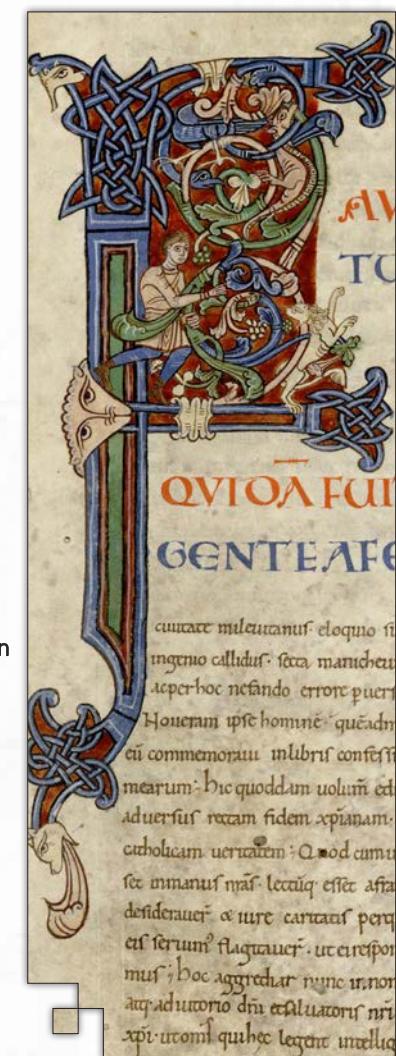 F
AV
TU
QVIDĀ FUI
GENTE AFE
n
ciuitate mileuitanus· eloquio su
ingenio callidus· secta manicheu
ac per hoc nefando errore puers
Noueram ipse hominē· quēadm
eū commemoraui inlibris confessi
mearum· hic quoddam uolum̄ edi
aduersus rectam fidem xp̄ianam·
catholicam ueritatem· Quod cum u
set inmanus nr̄as· lectūq· esset afra
desiderauer̄ & iure caritatis perq
eis seruim᷒ flagitauer̄· ut eirespon
mus; hoc aggrediar nunc in non
atq· adiutorio dn̄i etsaluatoris nr̄i
xp̄i· utoms̄ quihec legent intellig